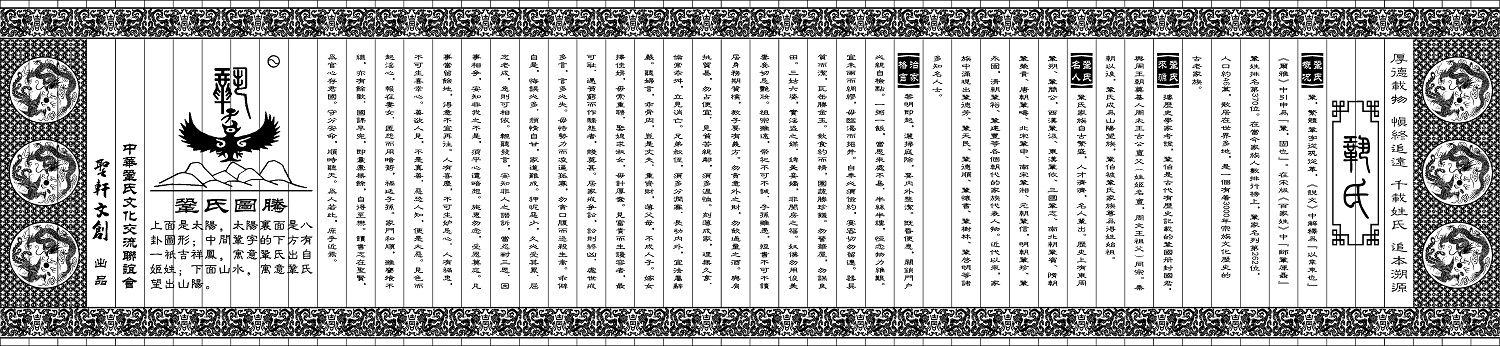 厚德載物 慎終追遠 千載姓氏 追本溯源
鞏氏
鞏氏概況 鞏，繁體鞏字從巩從革，《說文》中解釋爲「以韋束也」
《爾雅》中引申爲「鞏，固也」。在宋版《百家姓》中「師鞏厙聶」
鞏姓排名第370位。在當今家族人數排行榜上，鞏家名列第262位，
人口約45萬，散居在世界多地，是一個有着3000年宗族文化歷史的
古老家族。
鞏氏來源 據歷史學家考證，鞏伯是古代有歷史記載的鞏國所封國君，
與周王朝奠基人周太王古公亶父（姓姬名亶，周文王祖父）同宗。秦
朝以後，鞏氏成爲山陽望族，鞏伯被鞏氏家族尊爲得姓始祖。
鞏氏名人 鞏氏家族自古繁盛，人才濟濟，名人輩出。歷史上有東周
鞏朔、鞏簡公，西漢鞏汲，東漢鞏依，三國鞏志，南北朝鞏賓，隋朝
鞏貴，唐朝鞏疇，北宋鞏申，南宋鞏湘，元朝鞏信，明朝鞏珍、鞏
永固，清朝鞏裕、鞏建豐等各個朝代的家族代表人物。近代以來，家
族中涌現出鞏德芳、鞏天民、鞏德順、鞏懷書、鞏樹林、鞏啓明等諸
多知名人士。
治家格言 黎明即起，灑掃庭除，要内外整潔。既昏便息，關鎖門戶
必親自檢點。一粥一飯，當思來處不易，半絲半縷，恒念物力維艱。
宜未雨而綢繆，毋臨渴而掘井。自奉必須儉約，宴客切勿留連。器具
質而潔，瓦缶勝金玉。飲食約而精，園蔬勝珍饈。勿營華屋，勿謀良
田。三姑六婆，實淫盜之媒，婢美妾嬌，非閨房之福。奴僕勿用俊美
妻妾切忌艷妝。祖宗雖遠，祭祀不可不誠，子孫雖愚，經書不可不讀
居身務期質樸，教子要有義方。勿貪意外之財，勿飲過量之酒。與肩
挑貿易，勿占便宜，見貧苦親鄰，須多溫恤。刻薄成家，理無久享，
倫常乖舛，立見消亡。兄弟叔侄，須多分潤寡，長幼内外，宜法屬辭
嚴。聽婦言，乖骨肉，豈是丈夫，重資財，薄父母，不成人子。嫁女
擇佳婿，毋索重聘，娶媳求淑女，毋計厚奩。見富貴而生諂容者，最
可耻，遇貧窮而作驕態者，賤莫甚。居家戒爭訟，訟則終凶，處世戒
多言，言多必失。毋恃勢力而凌逼孤寡，勿貪口腹而恣殺生禽。乖僻
自是，悔誤必多，頹惰自甘，家道難成。狎昵惡少，久必受其累，屈
志老成，急則可相依。輕聽發言，安知非人之譖訴，當忍耐三思，因
事相爭，安知非我之不是，須平心遭暗想。施惠勿念，受恩莫忘。凡
事當留餘地，得意不宜再往。人有喜慶，不可生妒忌心，人有禍患，
不可生喜幸心。善欲人見，不是真善，惡恐人知，便是大惡。見色而
起淫心，報在妻女，匿怨而用暗箭，禍延子孫。家門和順，雖饔飧不
繼，亦有餘歡，國課早完，即囊橐無餘，自得至樂。讀書志在聖賢，
爲官心存君國。守分安命，順時聽天。爲人若此，庶乎近焉。
鞏氏圖騰
上面是太陽，太陽裏面是八
卦圖形；中間鞏字的下方有
一祇吉祥鳳，寓意鞏氏出自
姬姓；下面山水，寓意鞏氏
望出山陽。
中華鞏氏文化交流聯誼會
聖軒文創 出品